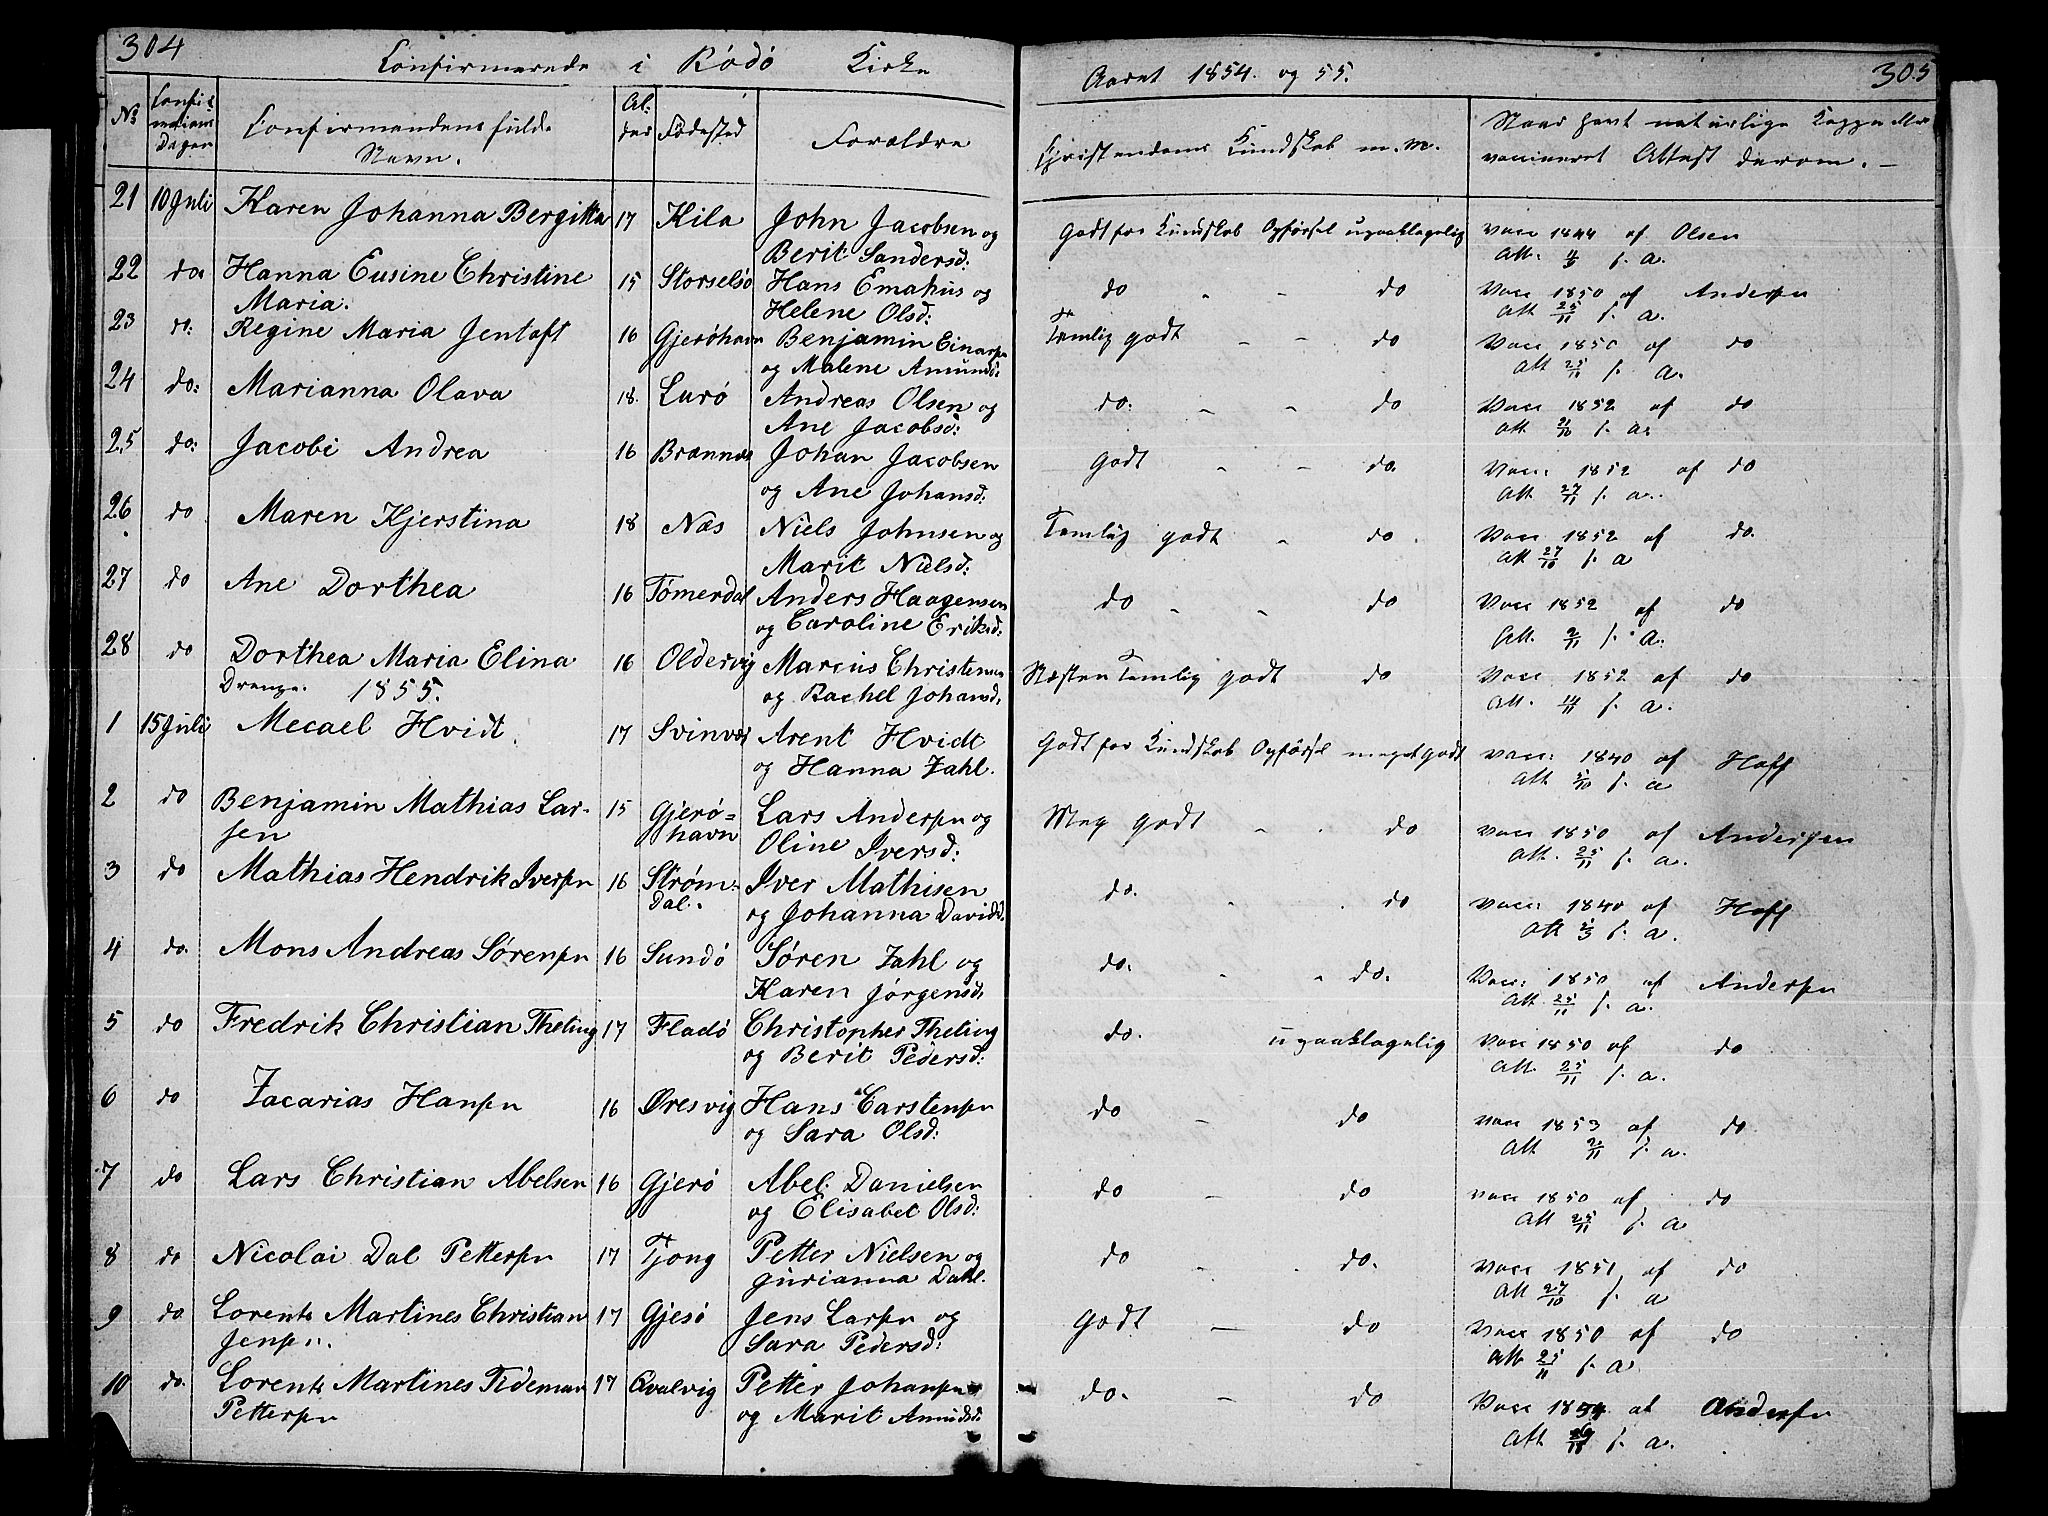 304
Confirmerede i Rödö Kirke
Aaret 1854. og 55.
305
No Confirmations Dagen Confirmandens fulde Navn. Alder Födested Forældre Christendoms Kundskab m. m. Naar havt naturlige Kopper eller vaccineret Attest derom.
21 10 Juli Karen Johanna Bergitta 17 Kila John Jacobsen og Godt for Kundskab Opförsel upaaklagelig Vacc 1844 af Olsen
Berit Sandersd: Att. f. a.
22 do Hanna Eusine Christine 15 Storselsö Hans Emahus og do - - do Vacc 1850 af Andersen
Maria. Helene Olsd: Att 25/11 f. a.
23 do: Regine Maria Jentoft 16 Gjeröhavn Benjamin Einarsen Temlig godt - - do Vacc 1850 af do
og Malene Amunds: Att 25/11 f. a.
24 do: Marianna Olava 18. Lurö Andreas Olsen og do. - - do Vacc 1852 af do
Ane Jacobsd: Att f. a.
25 do: Jacobi Andrea 16 Brænnæs Johan Jacobsen Godt - - do. Vacc. 1852 af do
og Ane Johansd: Att 27/11 f. a.
26 do Maren Kjerstina 18 Næs Niels Johnsen og Temlig godt - do. Vacc 1852 af do.
Marit Nielsd: Att 27/10 f. a
27 do Ane Dorthea 16 Tömerdal Anders Haagensen do - - do Vacc 1852 af do
og Caroline Eriksd: Att. 2/11 f. a.
28 do Dorthea Maria Elina 16 Oldervig Marcus Christensen Næsten Temlig godt do Vacc 1852 af do
Drenge. 1855. og Rachel Johansd. Att. 14/11 f. a.
1 15 Juli Mecael Hvidt. 17 Svinvær Arent Hvidt Godt for Kundskab Opförsel meget godt Vacc: 1840 af Hoff
og Hanna Zahl. Att f. a
2 do Benjamin Mathias Lar- 15 Gjerö= Lars Andersen og Meg godt - . do Vacc 1850 af Andersen
sen havn Oline Iversd: Att. 25/11 f. a.
3 do Mathias Hendrik Iversen 16 Ström- Iver Mathisen do. do Vacc: 1840 af Hoff
dal. og Johanna Davidsd. Att f. a.
4 do. Mons Andreas Sörensen 16 Sundö Sören Zahl og do. - do. Vacc: 1850 af Andersen
Karen Jörgensd. Att 25/11 f. a.
5 do Fredrik Christian Theting 17 Fladö Christopher Theting do. upaaklagelig Vacc 1850 af do
og Berit Pedersd: Att. 25/11 f. a.
6 do Zacarias Hansen 16 Öresvig Hans Carstensen do - do Vacc 1853 af do
og Sara Olsd: Att 2/11 f. a.
7 do Lars Christian Abelsen 16 Gjerö Abel Danielsen do - do Vacc 1850 af do
og Elisabet Olsd: Att 25/11 f. a
8 do Nicolai Dal Pettersen 17 Tjong Petter Nielsen og do - . do. Vacc 1851 af do
Jurianna Dahl. Att 27/10 f. a
9 do. Lorents Martines Christian 17 Gjesö Jens Larsen og Godt - do Vacc 1850 af do
Jensen. Sara Pedersd: Att 25/11 f. a.
10 do. Lorents Martines Tideman 17 Qvalvig Petter Johansen do. - do Vacc 1854 af Andersen
Pettersen og Marit Amundsd: Att f. a.